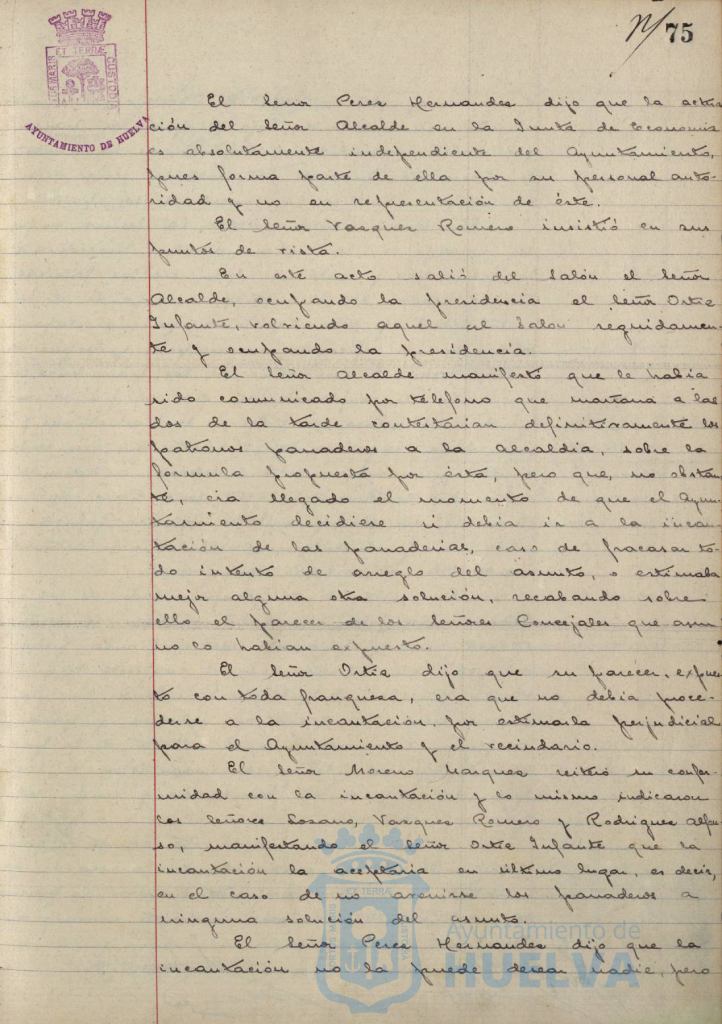 75
ET TERRÆ
CUSTODIA
AYUNTAMIENTO DE HUELVA
El Señor Perez Hernandez dijo que la actua-
ción del Señor Alcalde en la Junta de Economia
es absolutamente independiente del Ayuntamiento,
pues forma parte de ella por su personal auto-
ridad y no en representación de éste.
El Señor Vazquez Romero insistió en sus
puntos de vista.
En este acto salió del Salón el Señor
Alcalde, ocupando la presidencia el Señor Ortiz
Infante, volviendo aquel al Salón seguidamen-
te y ocupando la presidencia.
El Señor Alcalde manifestó que le habia
sido comunicado por teléfono que mañana a las
dos de la tarde contestarian definitivamente los
patronos panaderos a la Alcaldia, sobre la
fórmula propuesta por ésta, pero que, no obstan-
te, era llegado el momento de que el Ayun-
tamiento decidiere si debia ir a la incau-
tación de las panaderias, caso de fracasar to-
do intento de arreglo del asunto, o estimaba
mejor alguna otra solución, recabando sobre
ello el parecer de los Señores Concejales que aun
no lo habian expuesto.
El Señor Ortiz dijo que su parecer, expues-
to con toda franqueza, era que no debia proce-
derse a la incautación, por estimarla perjudicial
para el Ayuntamiento y el vecindario.
El Señor Moreno Marquez reiteró su confor-
midad con la incautación y lo mismo indicaron
los Señores Lozano, Vazquez Romero y Rodriguez Alfon-
so, manifestando el Señor Ortiz Infante que la
incautación la aceptaria en último lugar, es decir,
en el caso de no avenirse los panaderos a
ninguna solución del asunto.
El Señor Perez Hernandez dijo que la
incautación no la puede desear nadie, pero
Ayuntamiento de
HUELVA